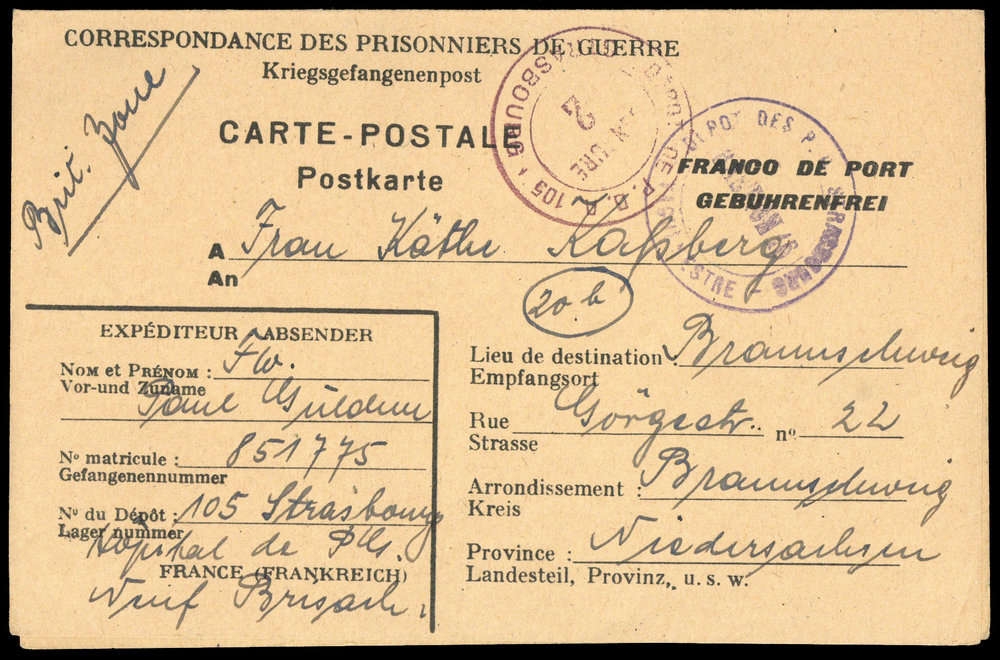 CORRESPONDANCE DES PRISONNIERS DE GUERRE
Kriegsgefangenenpost
Brit. Zone
CARTE-POSTALE
Postkarte
FRANCO DE PORT
GEBÜHRENFREI
A Frau Käthe Kaßberg
An
20 b
EXPÉDITEUR - ABSENDER
NOM et PRÉNOM : Fw.
Vor-und Zuname
Paul
Nº matricule : 851775
Gefangenennummer
Nº du Dépôt : 105 Strasbourg
Lager nummer
Hôpital de P.G.
FRANCE (FRANKREICH)
Neuf Brisach.
Lieu de destination : Braunschweig
Empfangsort
Rue Görgestr. nº 22
Strasse
Arrondissement : Braunschweig
Kreis
Province : Niedersachsen
Landesteil, Provinz, u. s. w.
DÉPOT DE P. G. 105 STRASBOURG
2
DÉPOT DES P. G. STRASBOURG